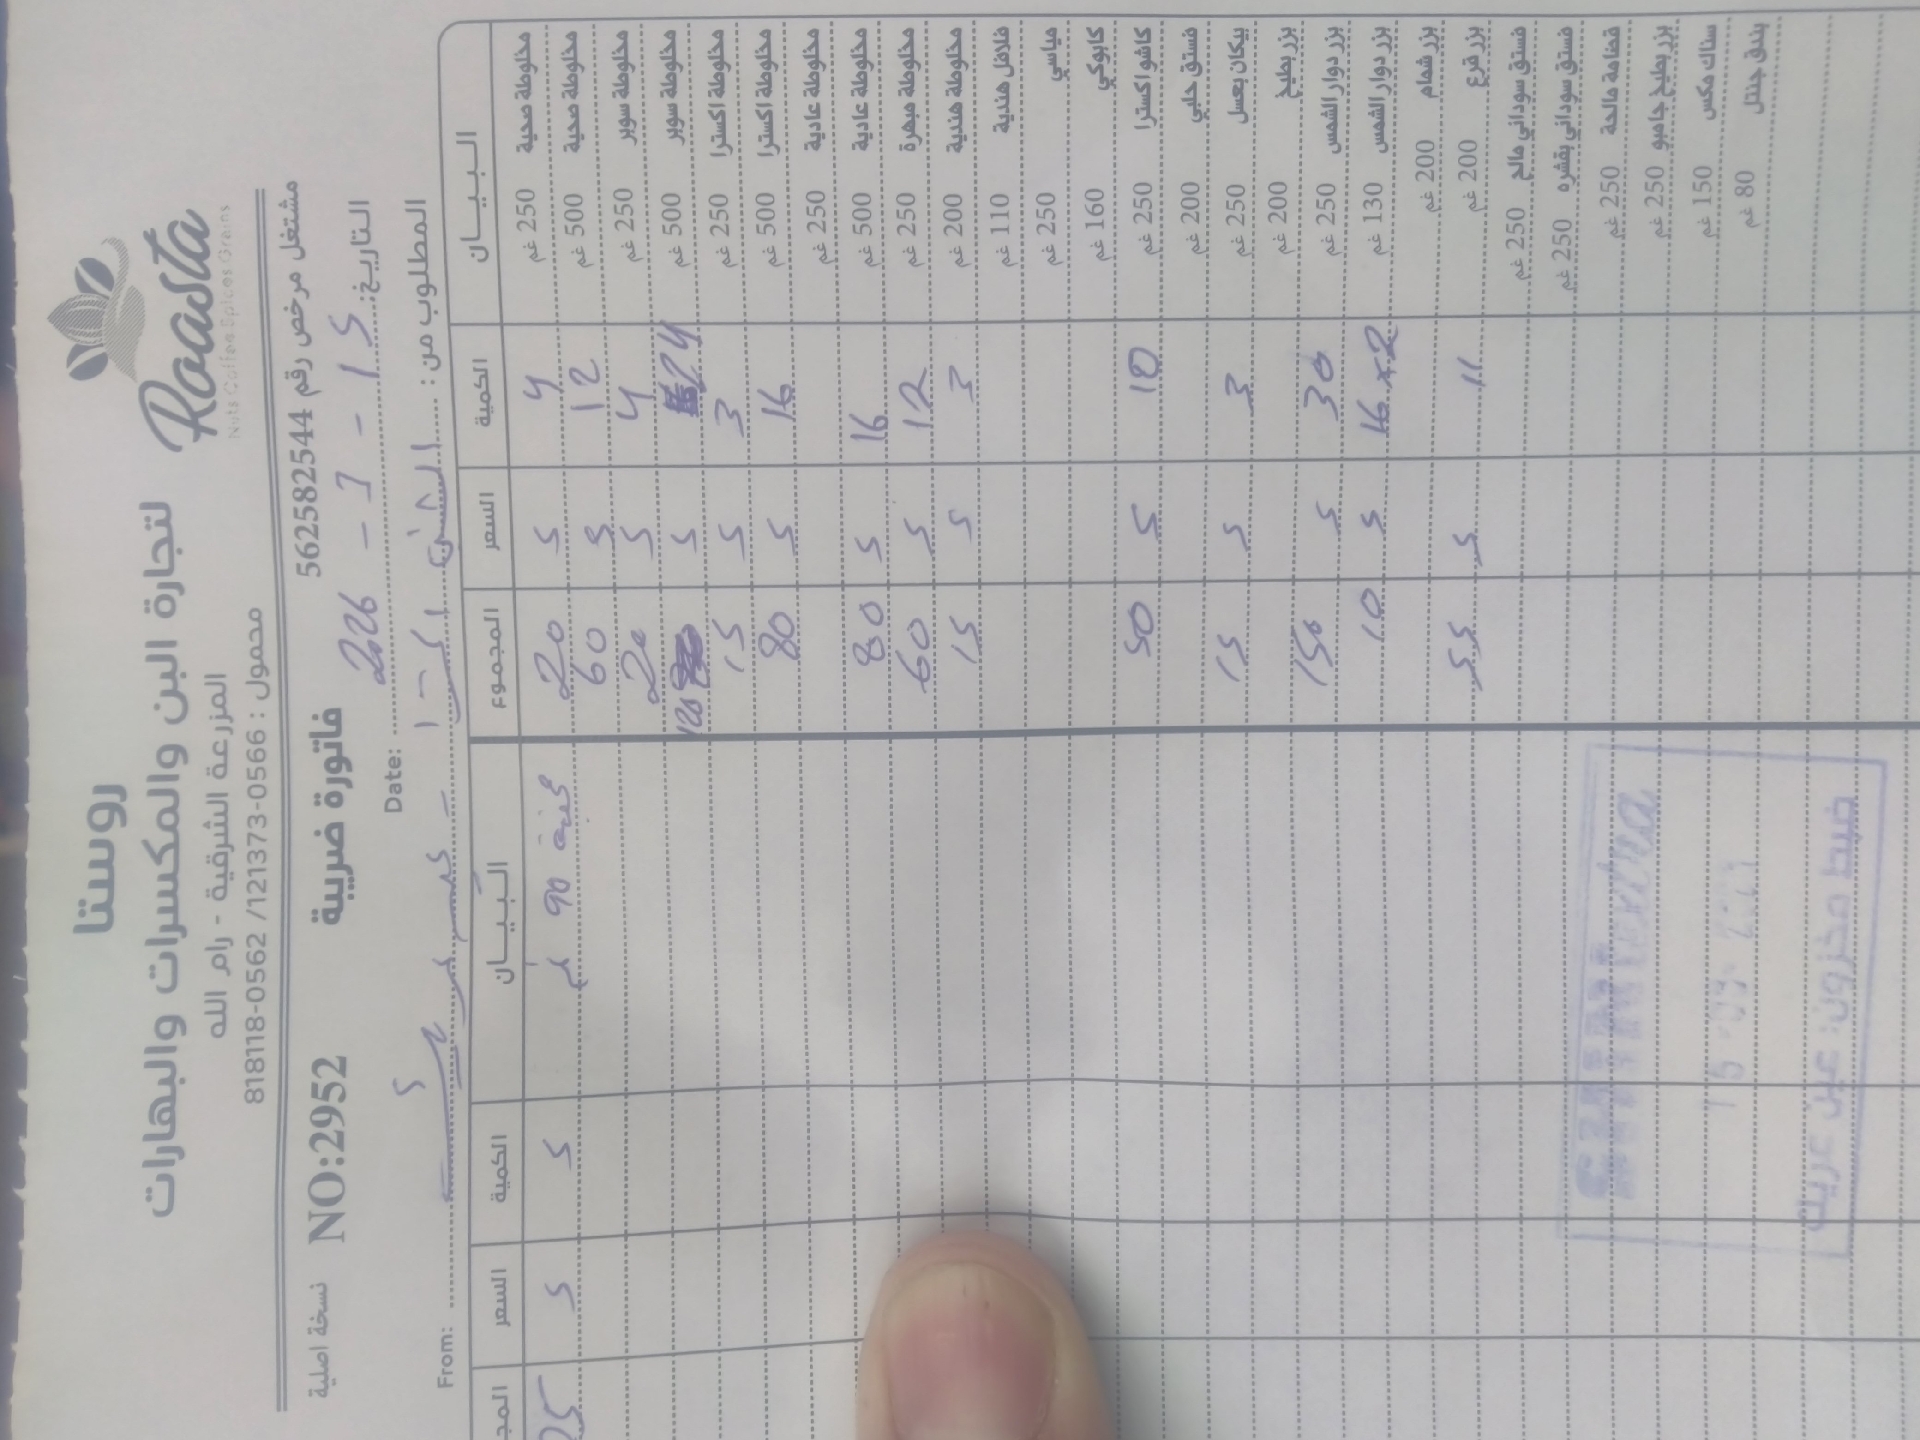 روستا
لتجارة البن والمكسرات والبهارات
المزرعة الشرقية - رام الله
محمول : 0566-121373/ 0562-818118
Roasta
Nuts Coffee Spices Grains
مشتغل مرخص رقم 562582544
فاتورة ضريبة
NO:2952
نسخة اصلية
التاريخ: 15 - 7 - 2026 Date:
المطلوب من: From:
البيــان الكمية السعر المجموع البيــان الكمية السعر المجـ
مخلوطة صحية 250 غم 4 5 20 90 غم 5 5 25
مخلوطة صحية 500 غم 12 5 60
مخلوطة سوبر 250 غم 4 5 20
مخلوطة سوبر 500 غم 24 5 120
مخلوطة اكسترا 250 غم 3 5 15
مخلوطة اكسترا 500 غم 16 5 80
مخلوطة عادية 250 غم
مخلوطة عادية 500 غم 16 5 80
مخلوطة مبهرة 250 غم 12 5 60
مخلوطة هندية 200 غم 3 5 15
فلافل هندية 110 غم
ميامي 250 غم
كابوكي 160 غم
كاشو اكسترا 250 غم 10 5 50
فستق حلبي 200 غم
بيكان بعسل 250 غم 3 5 15
بزر بطيخ 200 غم
بزر دوار الشمس 250 غم 30 5 150
بزر دوار الشمس 130 غم 16x2 5 10
بزر شمام 200 غم
بزر قرع 200 غم 11 5 55
فستق سوداني مالح 250 غم
فستق سوداني بقشره 250 غم
قضامة مالحة 250 غم
بزر بطيخ جامبو 250 غم
سناك مكس 150 غم
بندق جنتل 80 غم
ضبط مخزون: عين عريك